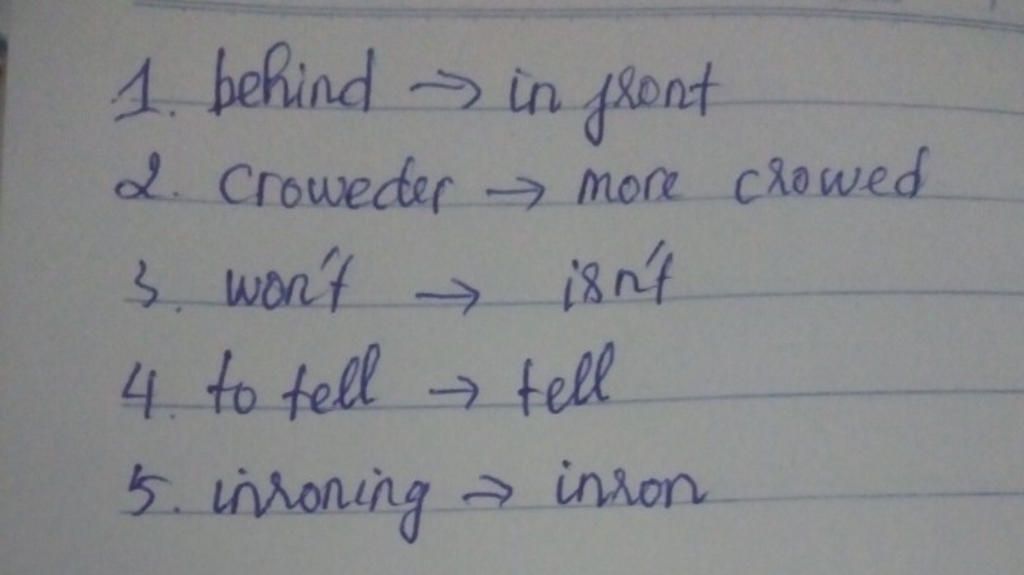 1. behind → in front
2. croweder → more crowed
3. won't → isn't
4. to tell → tell
5. inroning → inron